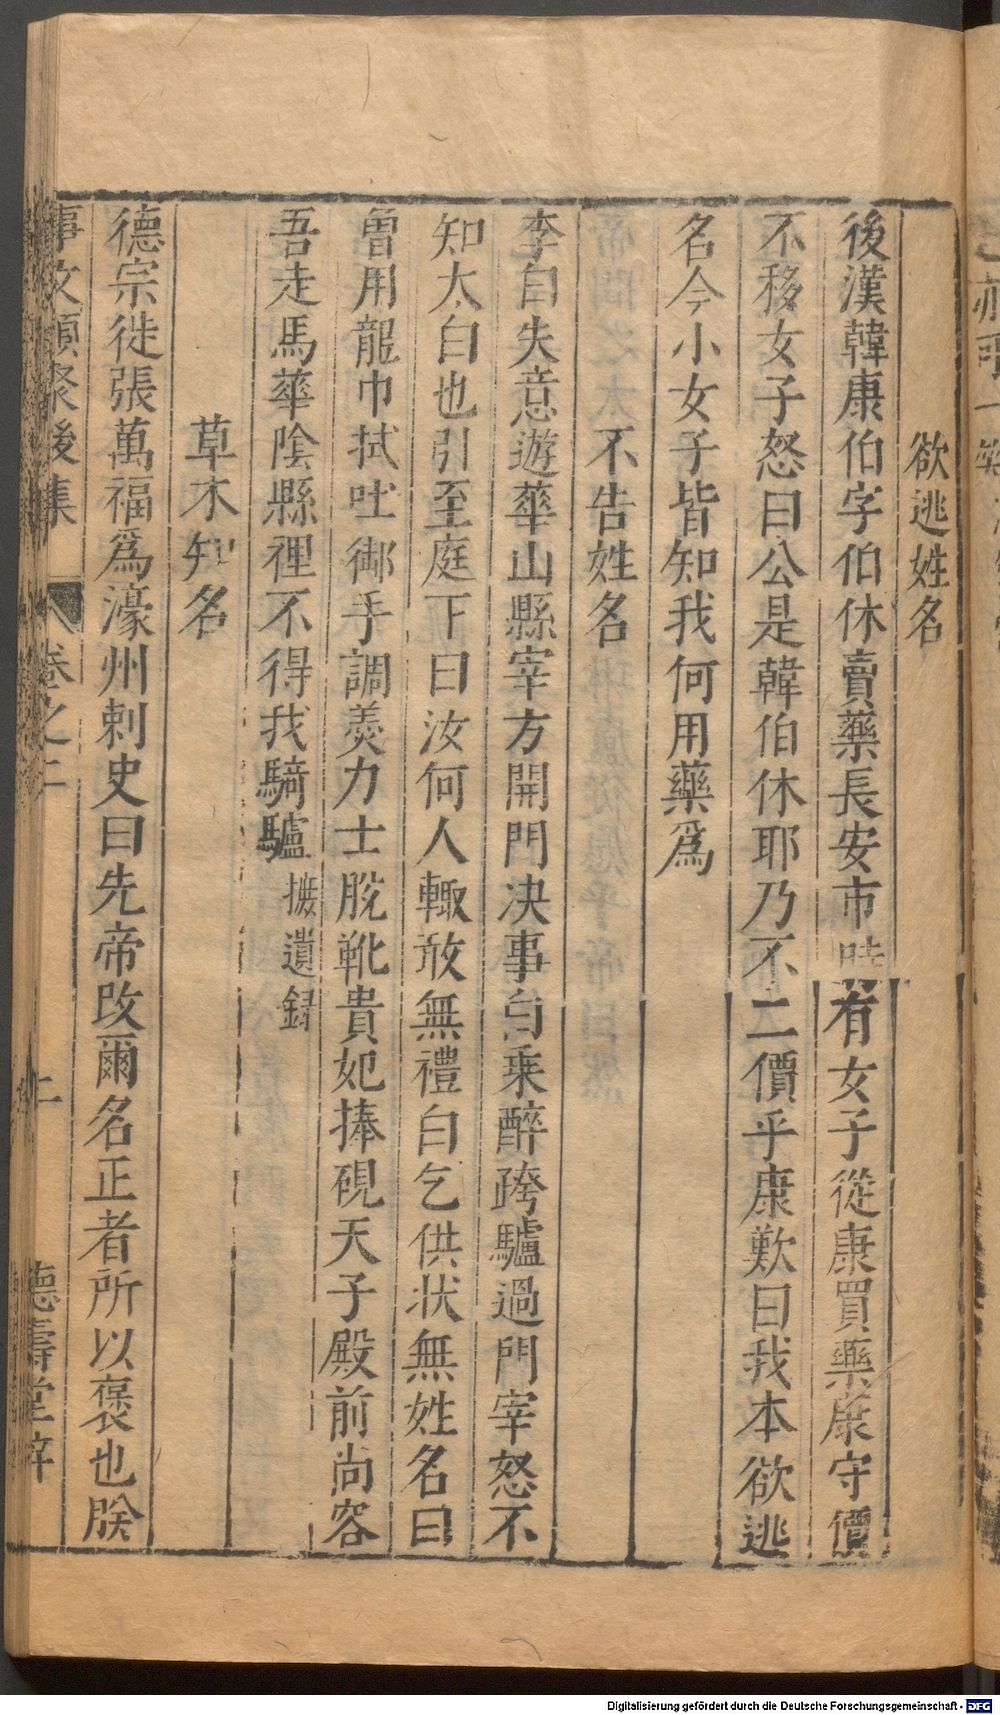 欲逃姓名
後漢韓康伯字伯休賣藥長安市時有女子從康買藥康守價
不移女子怒曰公是韓伯休耶乃不二價乎康歎曰我本欲逃
名今小女子皆知我何用藥爲
不告姓名
李白失意遊華山縣宰方開門决事白乘醉跨驢過門宰怒不
知太白也引至庭下曰汝何人輙敢無禮白乞供状無姓名曰
曾用龍巾拭吐御手調羹力士脫靴貴妃捧硯天子殿前尚容
吾走馬華陰縣裡不得我騎驢 摭遺録
草木知名
德宗徙張萬福爲濠州刺史曰先帝改爾名正者所以褒也朕
事文類聚後集 卷之二 德壽堂梓
Digitalisierung gefördert durch die Deutsche Forschungsgemeinschaft - DFG